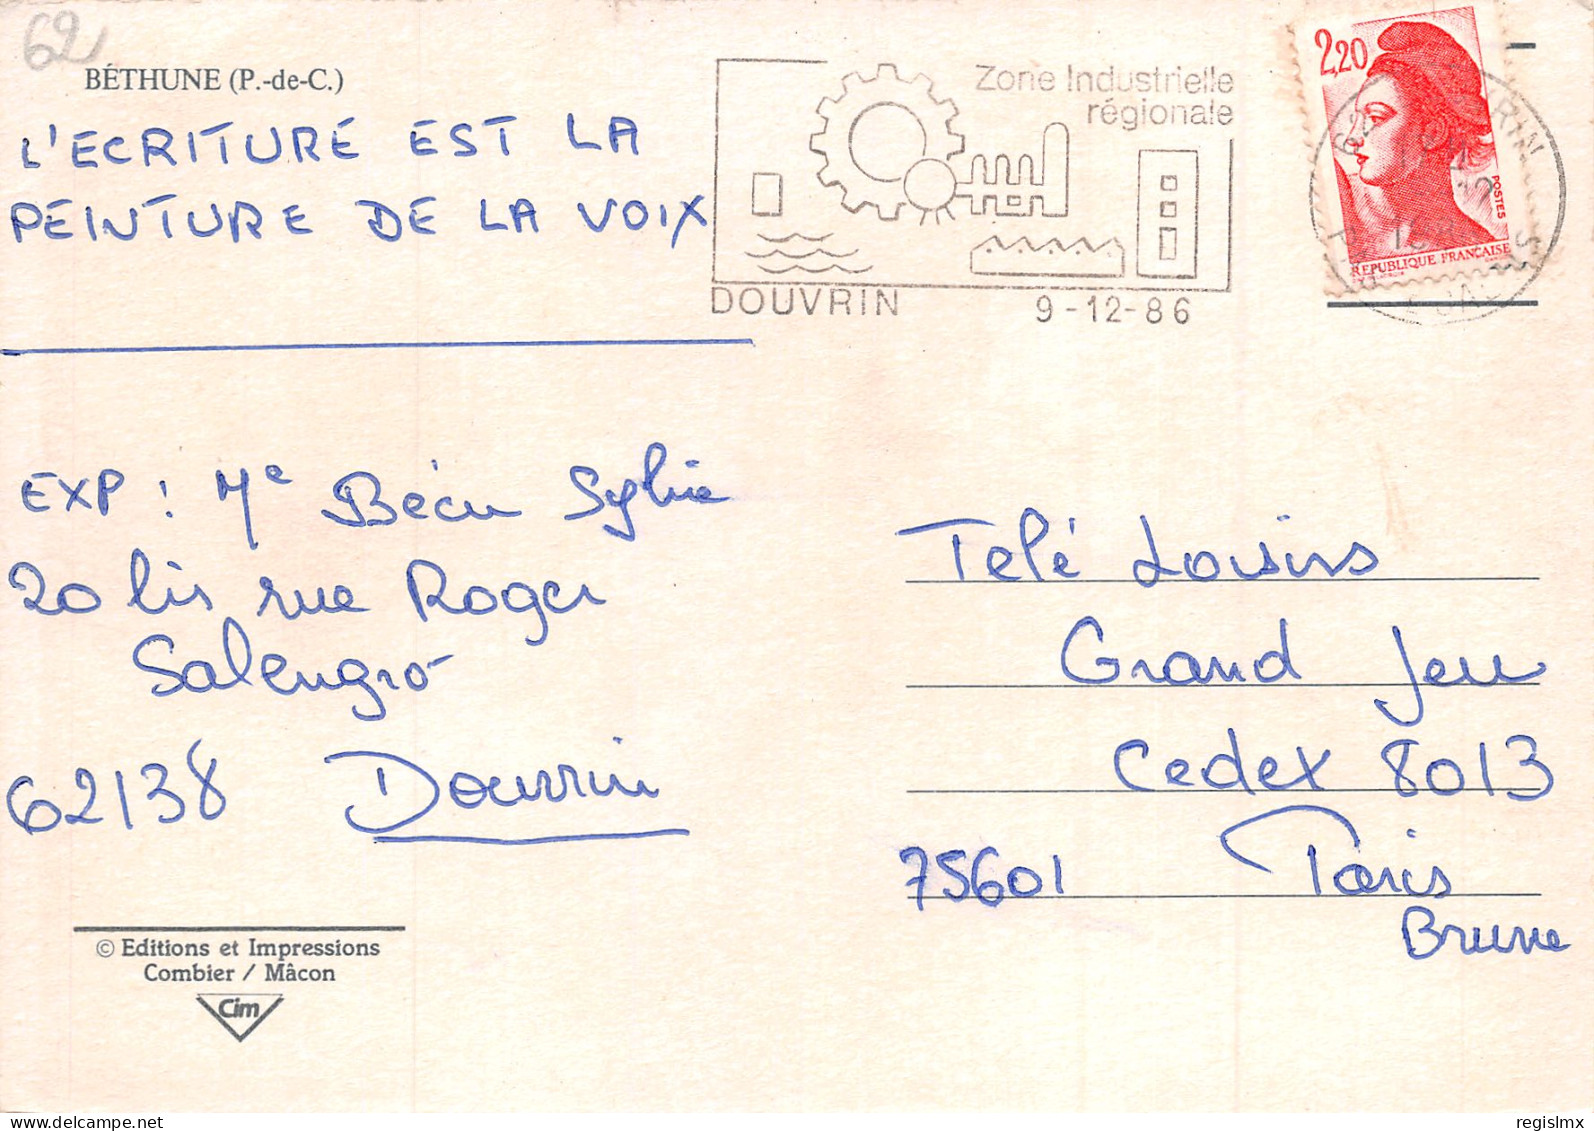 62
BÉTHUNE (P.-de-C.)
L'ECRITURE EST LA
PEINTURE DE LA VOIX
Zone Industrielle
régionale
DOUVRIN
9-12-86
2,20
POSTES
REPUBLIQUE FRANÇAISE
EXP : Me Bécu Sylvie
20 bis rue Roger
Salengro
62138 Douvrin
Telé Loisirs
Grand Jeu
Cedex 8013
75601 Paris
Brune
© Editions et Impressions
Combier / Mâcon
Cim
regislmx